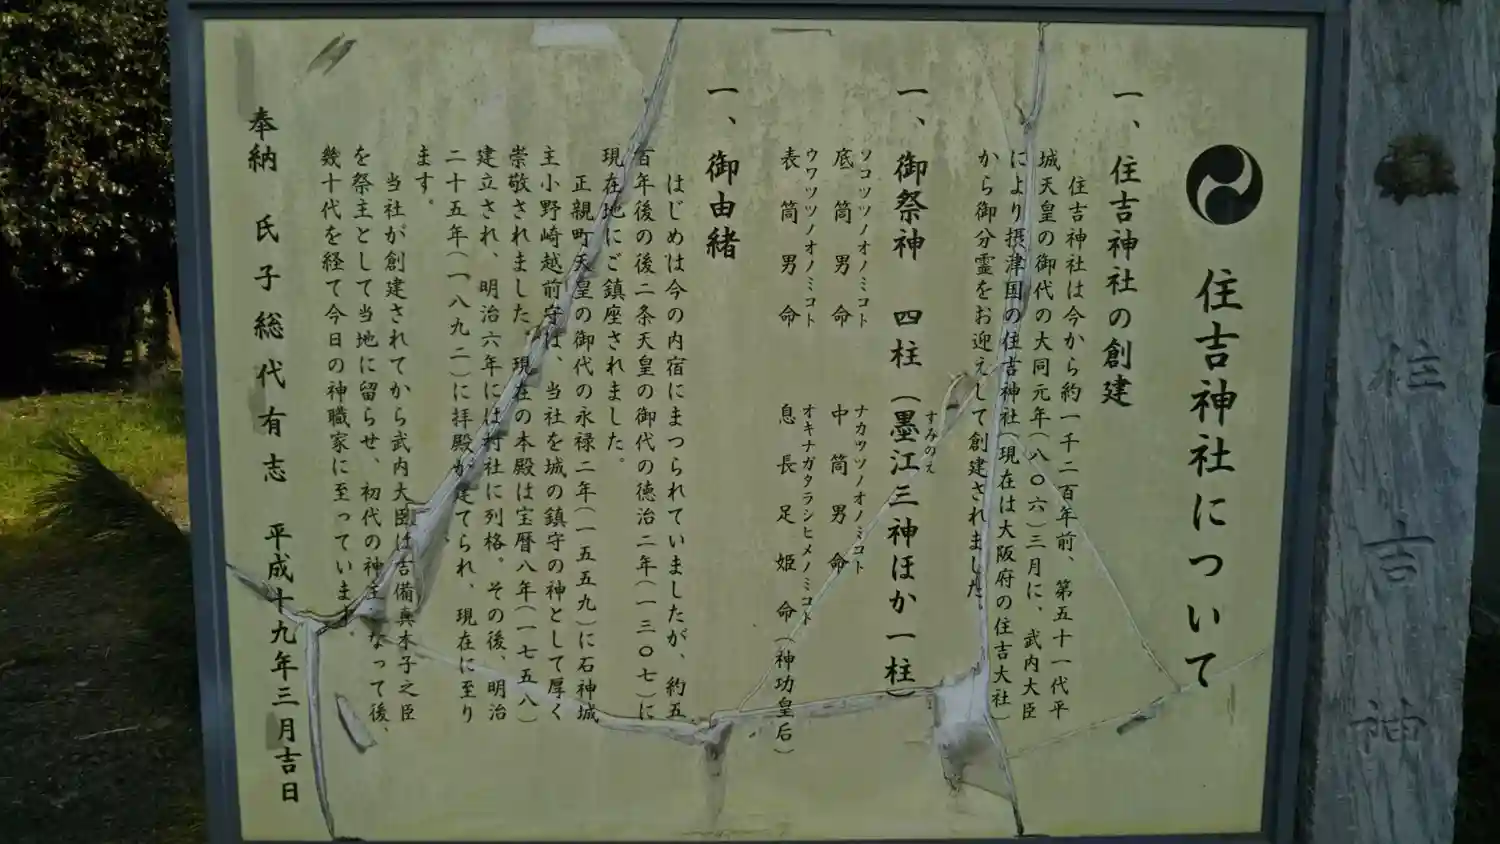 住吉神社について
一、住吉神社の創建
住吉神社は今から約一千二百年前、第五十一代平
城天皇の御代の大同元年(八〇六)三月に、武内大臣
により摂津国の住吉神社(現在は大阪府の住吉大社)
から御分霊をお迎えして創建されました。
一、御祭神 四柱(墨江三神ほか一柱)
すみのえ
ソコツツノオノミコト ナカツツノオノミコト
底筒男命 中筒男命
ウワツツノオノミコト オキナガタラシヒメノミコト
表筒男命 息長足姫命(神功皇后)
一、御由緒
はじめは今の内宿にまつられていましたが、約五
百年後の後二条天皇の御代の徳治二年(一三〇七)に
現在地にご鎮座されました。
正親町天皇の御代の永禄二年(一五五九)に石神城
主小野崎越前守は、当社を城の鎮守の神として厚く
崇敬されました。現在の本殿は宝暦八年(一七五八)
建立され、明治六年には村社に列格。その後、明治
二十五年(一八九二)に拝殿が建てられ、現在に至り
ます。
当社が創建されてから武内大臣は吉備真本子之臣
を祭主として当地に留らせ、初代の神主となって後、
幾十代を経て今日の神職家に至っています。
奉納 氏子総代有志 平成十九年三月吉日
住吉神